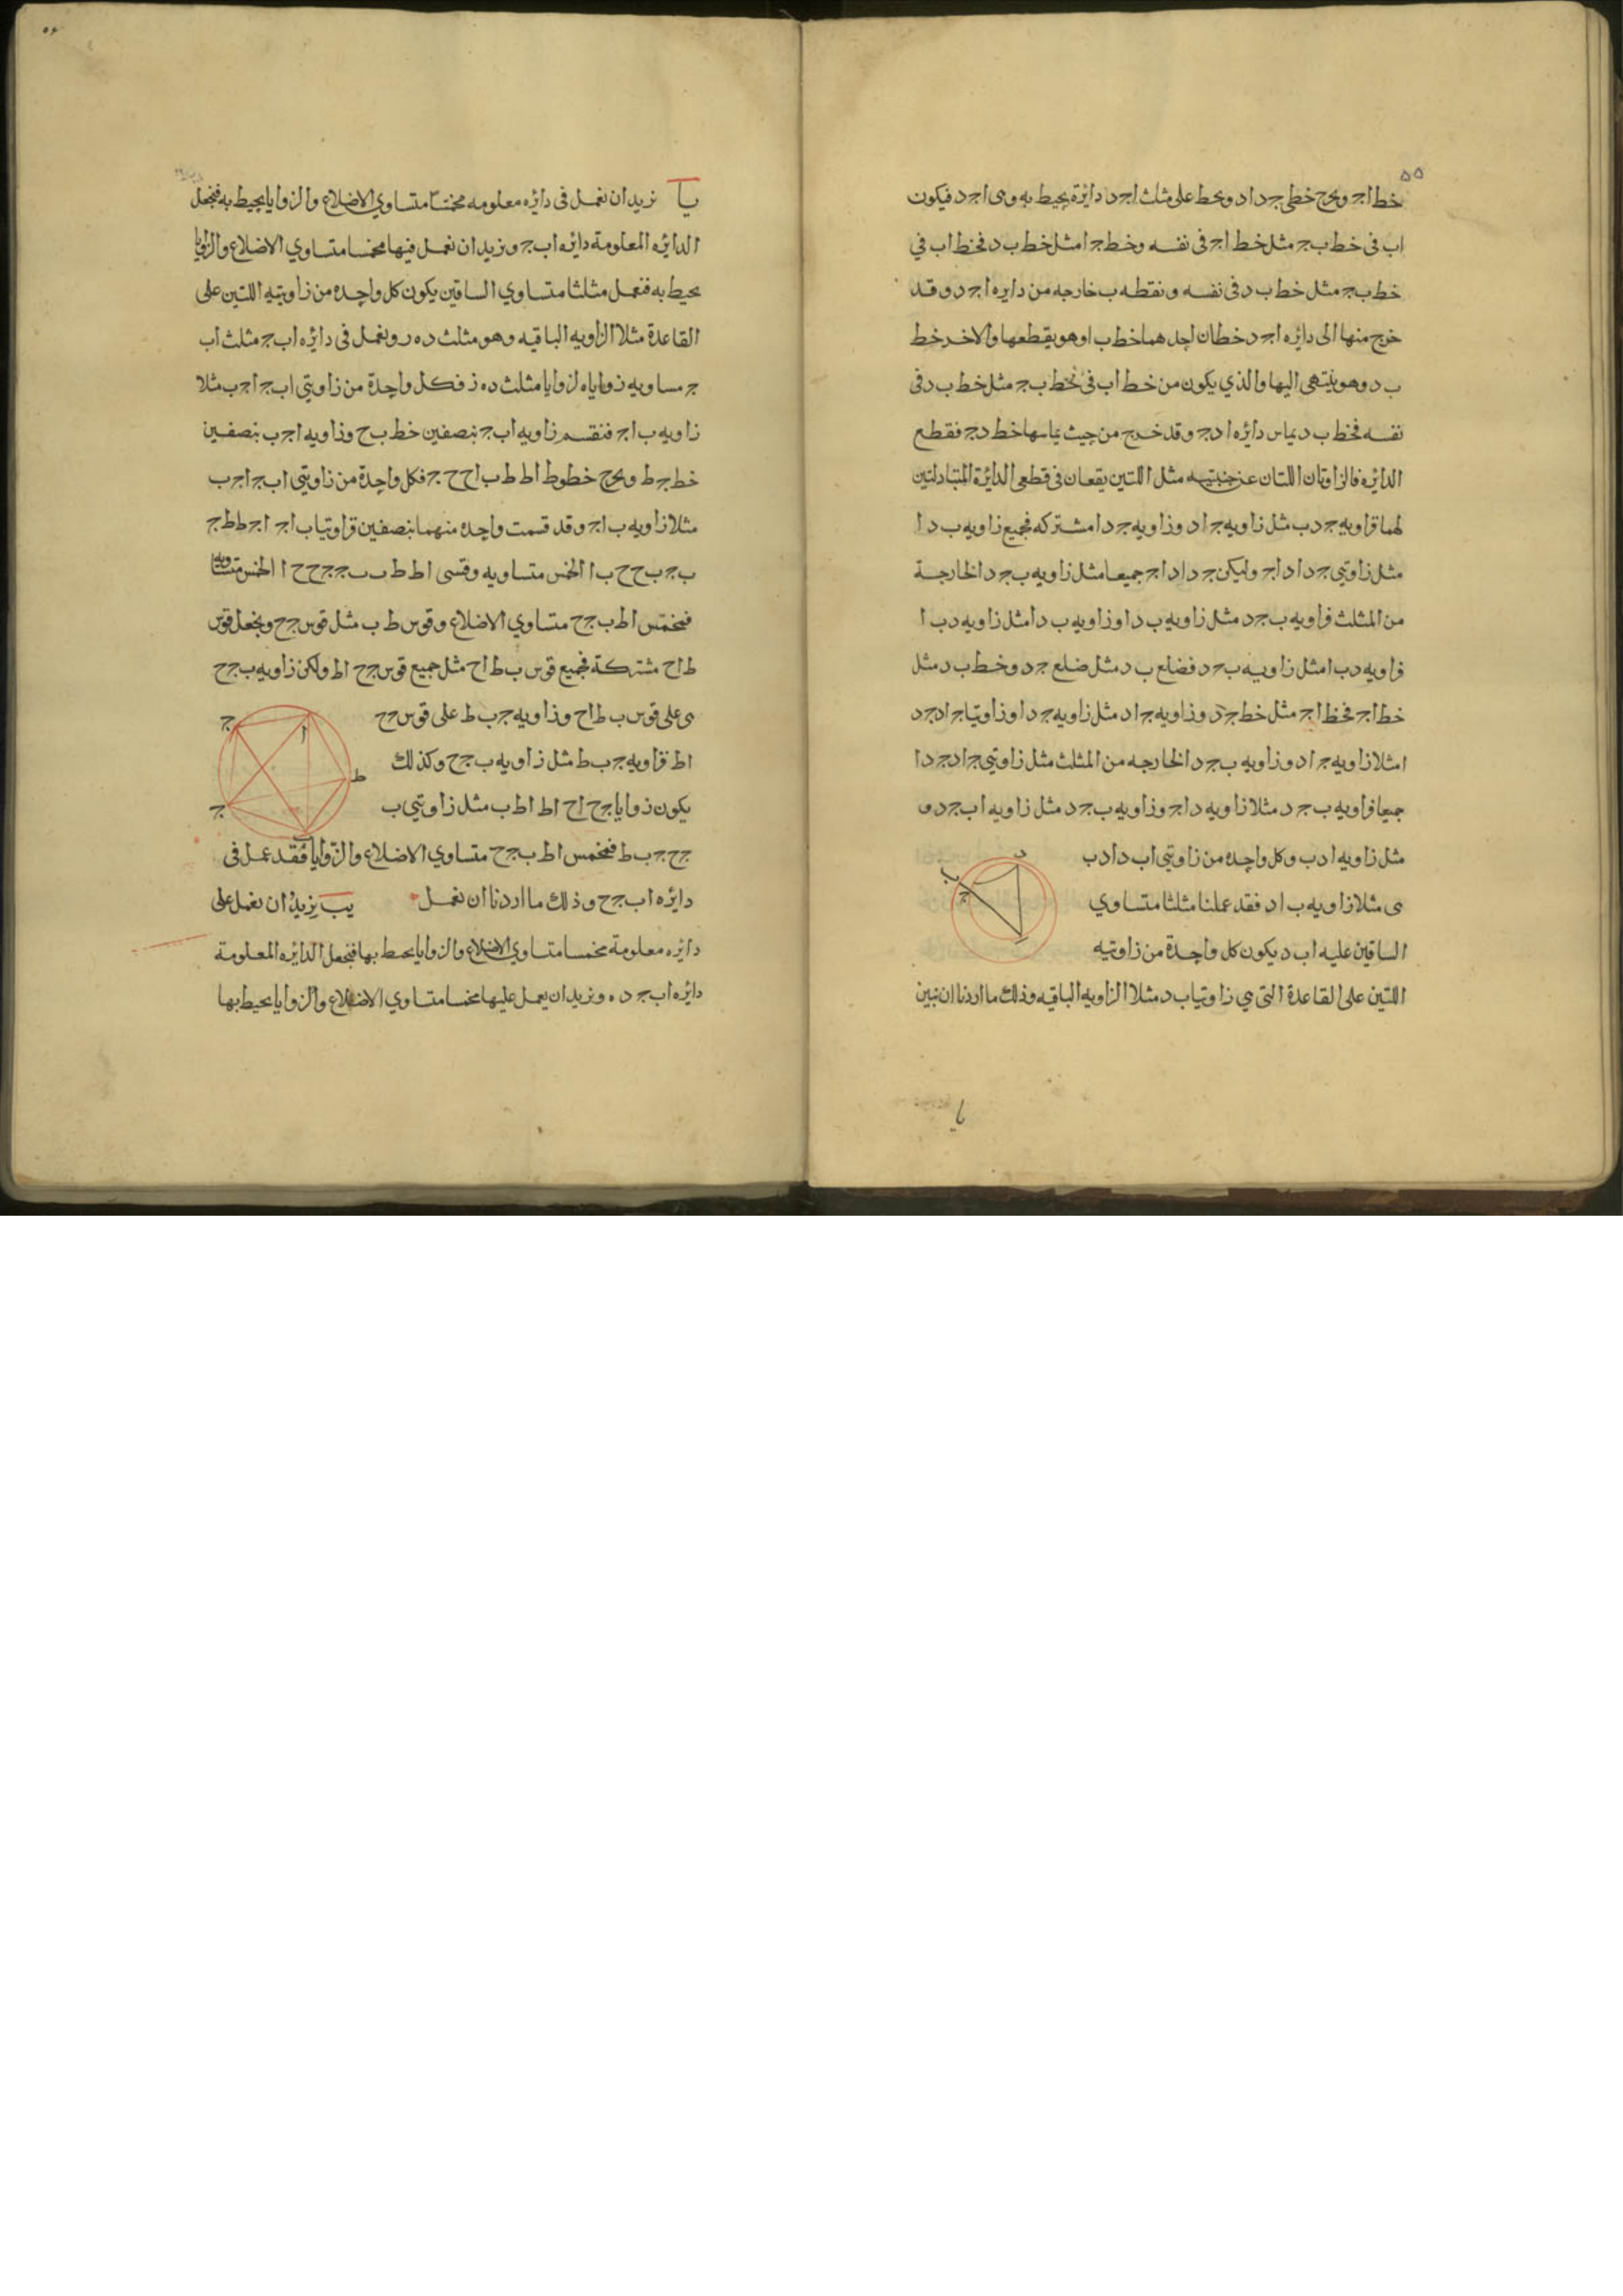 ٥٥
خط اجـ ونخرج خطى جـد اد ونخط على مثلث اجـد دايرة يحيط به وهى اجـد فيكون
اب فى خط بجـ مثل خط اجـ فى نفسه وخط جـا مثل خط بد فخط اب في
خط بجـ مثل خط بد فى نفسه ونقطه ب خارجه من دايره اجـد وقد
خرج منها الى دايره اجـد خطان احدهما خط با وهو يقطعها والاخر خط
بد وهو ينتهى اليها والذي يكون من خط اب فى خط بجـ مثل خط بد فى
نفسه فخط بد يماس دائره ادجـ وقد خرج من حيث يماسها خط دجـ فقطع
الدائره فالزاويتان اللتان عن جنبتيه مثل اللتين يقعان فى قطعى الدائرة المتبادلتين
لهما فزاويه جـدب مثل زاويه جـاد وزاويه جـدا مشتركه فجميع زاويه بدا
مثل زاويتي جـدا داجـ وليكن جـدا داجـ جميعا مثل زاويه بجـد الخارجة
من المثلث فزاويه بجـد مثل زاويه بدا وزاويه بدا مثل زاويه دبا
فزاويه دبا مثل زاويه بجـد فضلع بد مثل ضلع جـد وخط بد مثل
خط اجـ فخط اجـ مثل خط جـد وزاويه جـاد مثل زاويه جـدا وزاويتا جـاد جـد
ا مثلا زاويه جـاد وزاويه بجـد الخارجه من المثلث مثل زاويتي جـاد جـدا
جميعا فزاويه بجـد مثلا زاويه داجـ وزاويه بجـد مثل زاويه ابجـد و
مثل زاويه ادب وكل واحده من زاويتى ابد ادب
هى مثلا زاويه باد فقد عملنا مثلثا متساوي
الساقين عليه ابد يكون كل واحدة من زاويتيه
اللتين على القاعدة التى هي زاويتا بد مثلا الزاويه الباقيه وذلك ما اردنا ان نبين
د
ب
جـ
ا
يا
٥٦
يا نريد ان نعمل فى دائره معلومه مخمسا متساوي الاضلاع والزوايا يحيط به فنجعل
الدائره المعلومة دائره ابجـ ونريد ان نعمل فيها مخمسا متساوي الاضلاع والزوايا
يحيط به فنعمل مثلثا متساوي الساقين يكون كل واحده من زاويتيه اللتين على
القاعدة مثلا الزاويه الباقيه وهو مثلث دهر ونعمل فى دائره ابجـ مثلث اب
جـ مساويه زواياه لزوايا مثلث دهز فكل واحدة من زاويتى ابجـ اجـب مثلا
زاويه باجـ فنقسم زاويه ابجـ بنصفين خط بح وزاويه اجـب بنصفين
خط جـط ونخرج خطوط اط طب اح حجـ فكل واحدة من زاويتى ابجـ اجـب
مثلا زاويه باجـ وقد قسمت واحده منهما بنصفين فزاويتا باجـ اجـط طجـ
ب جـبح حبا الخمس متساويه وقسى اط طب بجـ جـح حا الخمس متساويه
فمخمس اطبجـح متساوي الاضلاع وقوس طب مثل قوس جـح ونجعل قوس
طاح مشتركة فجميع قوس بطاح مثل جميع قوس جـح اط ولكن زاويه بجـح
هى على قوس بطاح وزاويه جـبط على قوس جـح
اط فزاويه جـبط مثل زاويه بجـح وكذلك
يكون زوايا جـحا حاط اطب مثل زاويتي ب
جـح جـبط فمخمس اطبجـح متساوي الاضلاع والزوايا فقد عمل فى
دائره ابجـح وذلك ما اردنا ان نعمل يب نريد ان نعمل على
دايره معلومة مخمسا متساوي الاضلاع والزوايا يحيط بها فنجعل الدائره المعلومة
دائره ابجـده ونريد ان نعمل عليها مخمسا متساوي الاضلاع والزوايا يحيط بها
جـ
ا
ط
جـ
ب